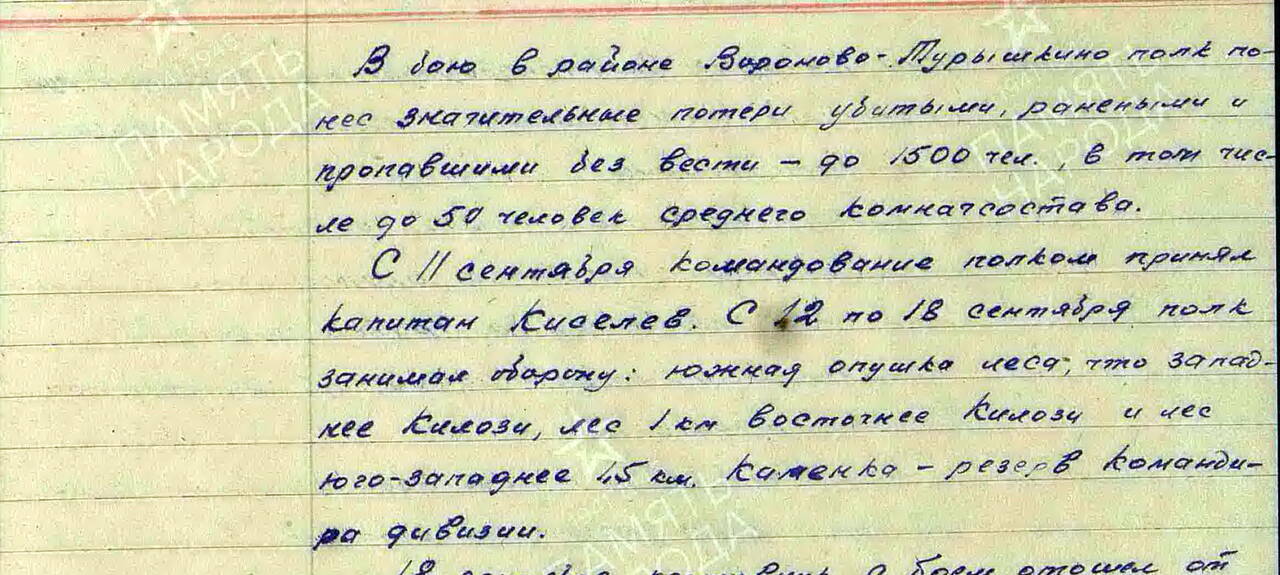 В бою в районе Вороново-Турышкино полк по-
нес значительные потери убитыми, ранеными и
пропавшими без вести - до 1500 чел., в том чис-
ле до 50 человек среднего комначсостава.
С 11 сентября командование полком принял
капитан Киселев. С 12 по 18 сентября полк
занимал оборону: южная опушка леса, что запад-
нее Килози, лес 1 км восточнее Килози и лес
юго-западнее 1,5 км. Каменка - резерв команди-
ра дивизии.
18 с боем отошел от
ПАМЯТЬ
НАРОДА
ПАМЯТЬ
НАРОДА
ПАМЯТЬ
НАРОДА